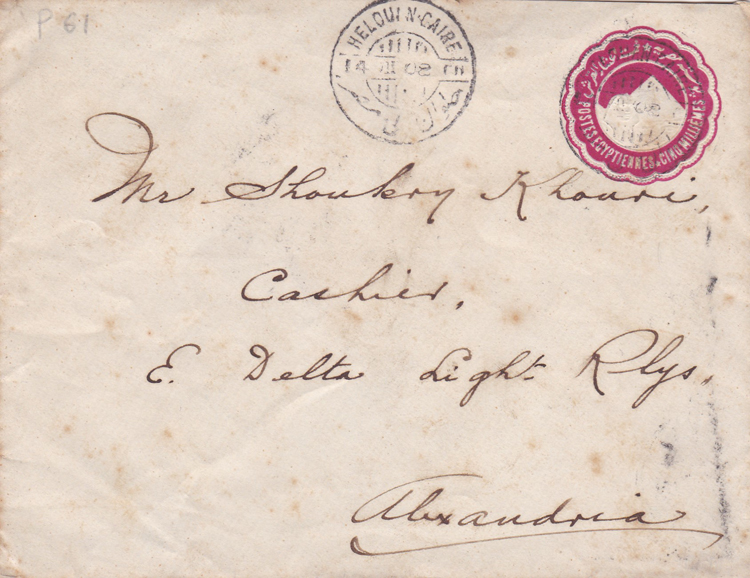 P 61
HELOUAN-CAIRE
14 III 08
POSTES EGYPTIENNES CINQ MILLIÈMES
Mr Shoukry Khouri,
Cashier,
E. Delta Light Rlys,
Alexandria